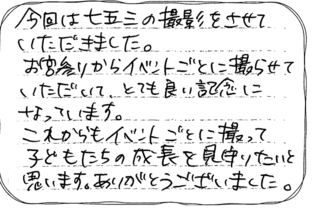 今回は七五三の撮影をさせて
いただきました。
お宮参りからイベントごとに撮らせて
いただいて、とても良い記念に
なっています。
これからもイベントごとに撮って
子どもたちの成長を見守りたいと
思います。ありがとうございました。